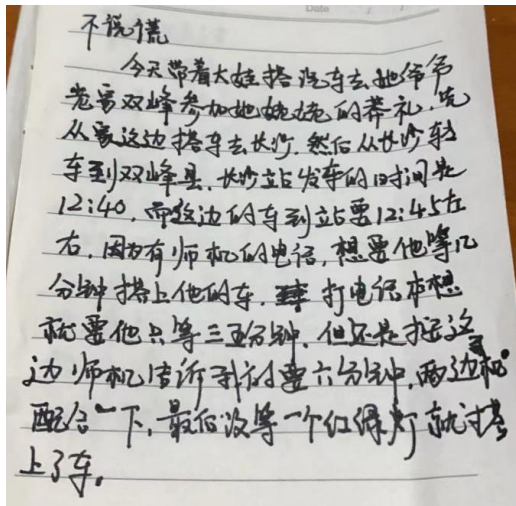 Date
不说谎
今天带着大娃搭汽车去她爷爷
老家双峰参加她姥姥的葬礼,先
从家这边搭车去长沙.然后从长沙转
车到双峰县.长沙站发车的时间是
12:40,而这边的车到站要12:45左
右,因为有师机的电话,想要他等几
分钟搭上他的车.打电话本想
就要他只等三五分钟,但还是按这
边师机告诉我的要六分钟,两边机
配合一下,最后没等一个红绿灯就搭
上了车。